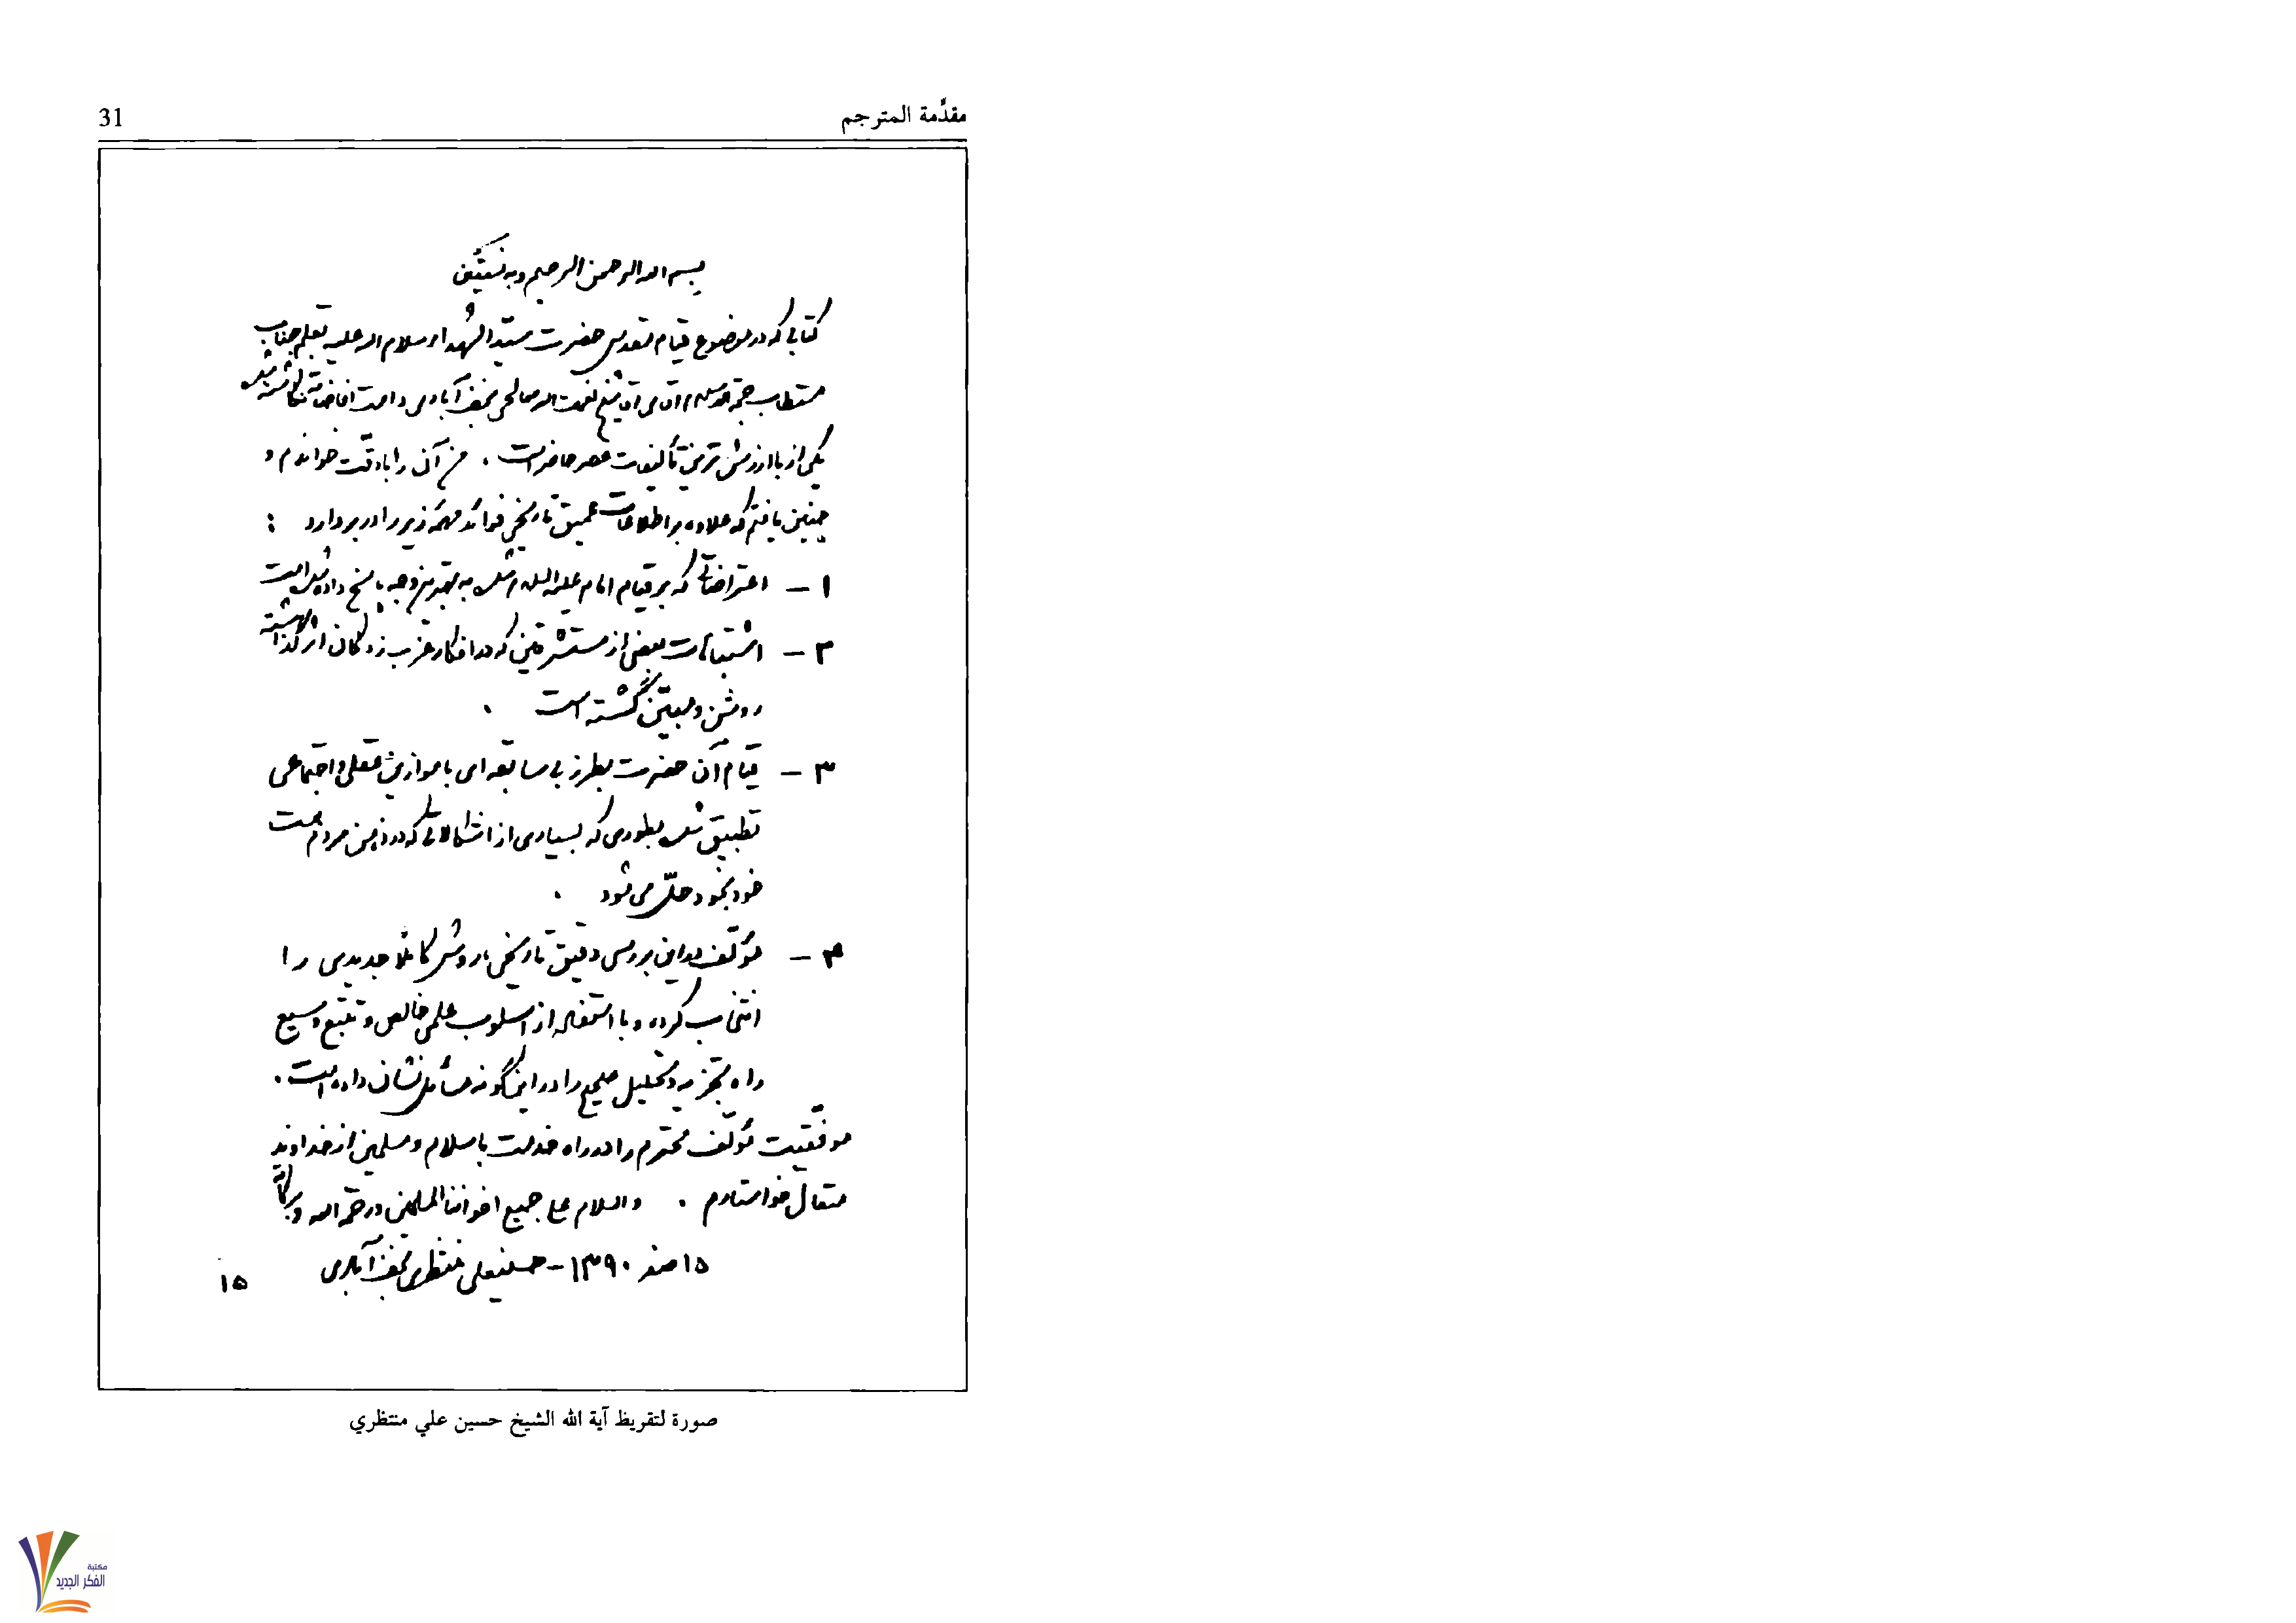 مقدَّمة المترجم
31
بسم الله الرحمن الرحيم و به نستعين
کتابی که در موضوع قیام مقدس حضرت سیّد الشهداء سلام الله علیه بقلم جناب
مستطاب حجةالاسلام آقای آقا شیخ نعمت الله صالحی نجف آبادی دامت افاضاته نگاشته شده
یکی از با ارزش ترین تألیفات عصر حاضر است . من آن را با دقّت خواندم و
چنین یافتم که علاوه بر اطلاعات عمیق تاریخی فوائد مهمّه زیر را در بر دارد :
۱ – اعتراضاتی که بر قیام امام علیه السلام شده به بهترین وجه پاسخ داده شده است
۲ – اشتباهات بعضی از مستشرقین که در افکار غرب زدگان اثر گذاشته
روشن و مبیّن گشته است .
۳ – قیام آن حضرت بطرز بی سابقه ای با موازین عقلی و اجتماعی
تطبیق شده بطوری که بسیاری از اشکالاتی که در ذهن مردم هست
خود بخود حلّ می شود .
۴ – مؤلّف در این بررسی دقیق تاریخی، روش کاملاً جدیدی را
انتخاب کرده و با استفاده از اسلوب علمی خالص و تتبّع وسیع
راه تجزیه و تحلیل صحیح را در اینگونه مسائل نشان داده است .
موفّقیّت مؤلّف محترم را در راه خدمت باسلام و مسلمین از خداوند
متعال خواستارم . والسلام علی جمیع اخواننا المسلمین و رحمة الله و برکاته
۱۵ صفر ۱۳۹۰ – حسینعلی منتظری نجف آبادی
۱۵
صورة لتقريظ آية الله الشيخ حسين علي منتظري
مكتبة
الفكر الجديد